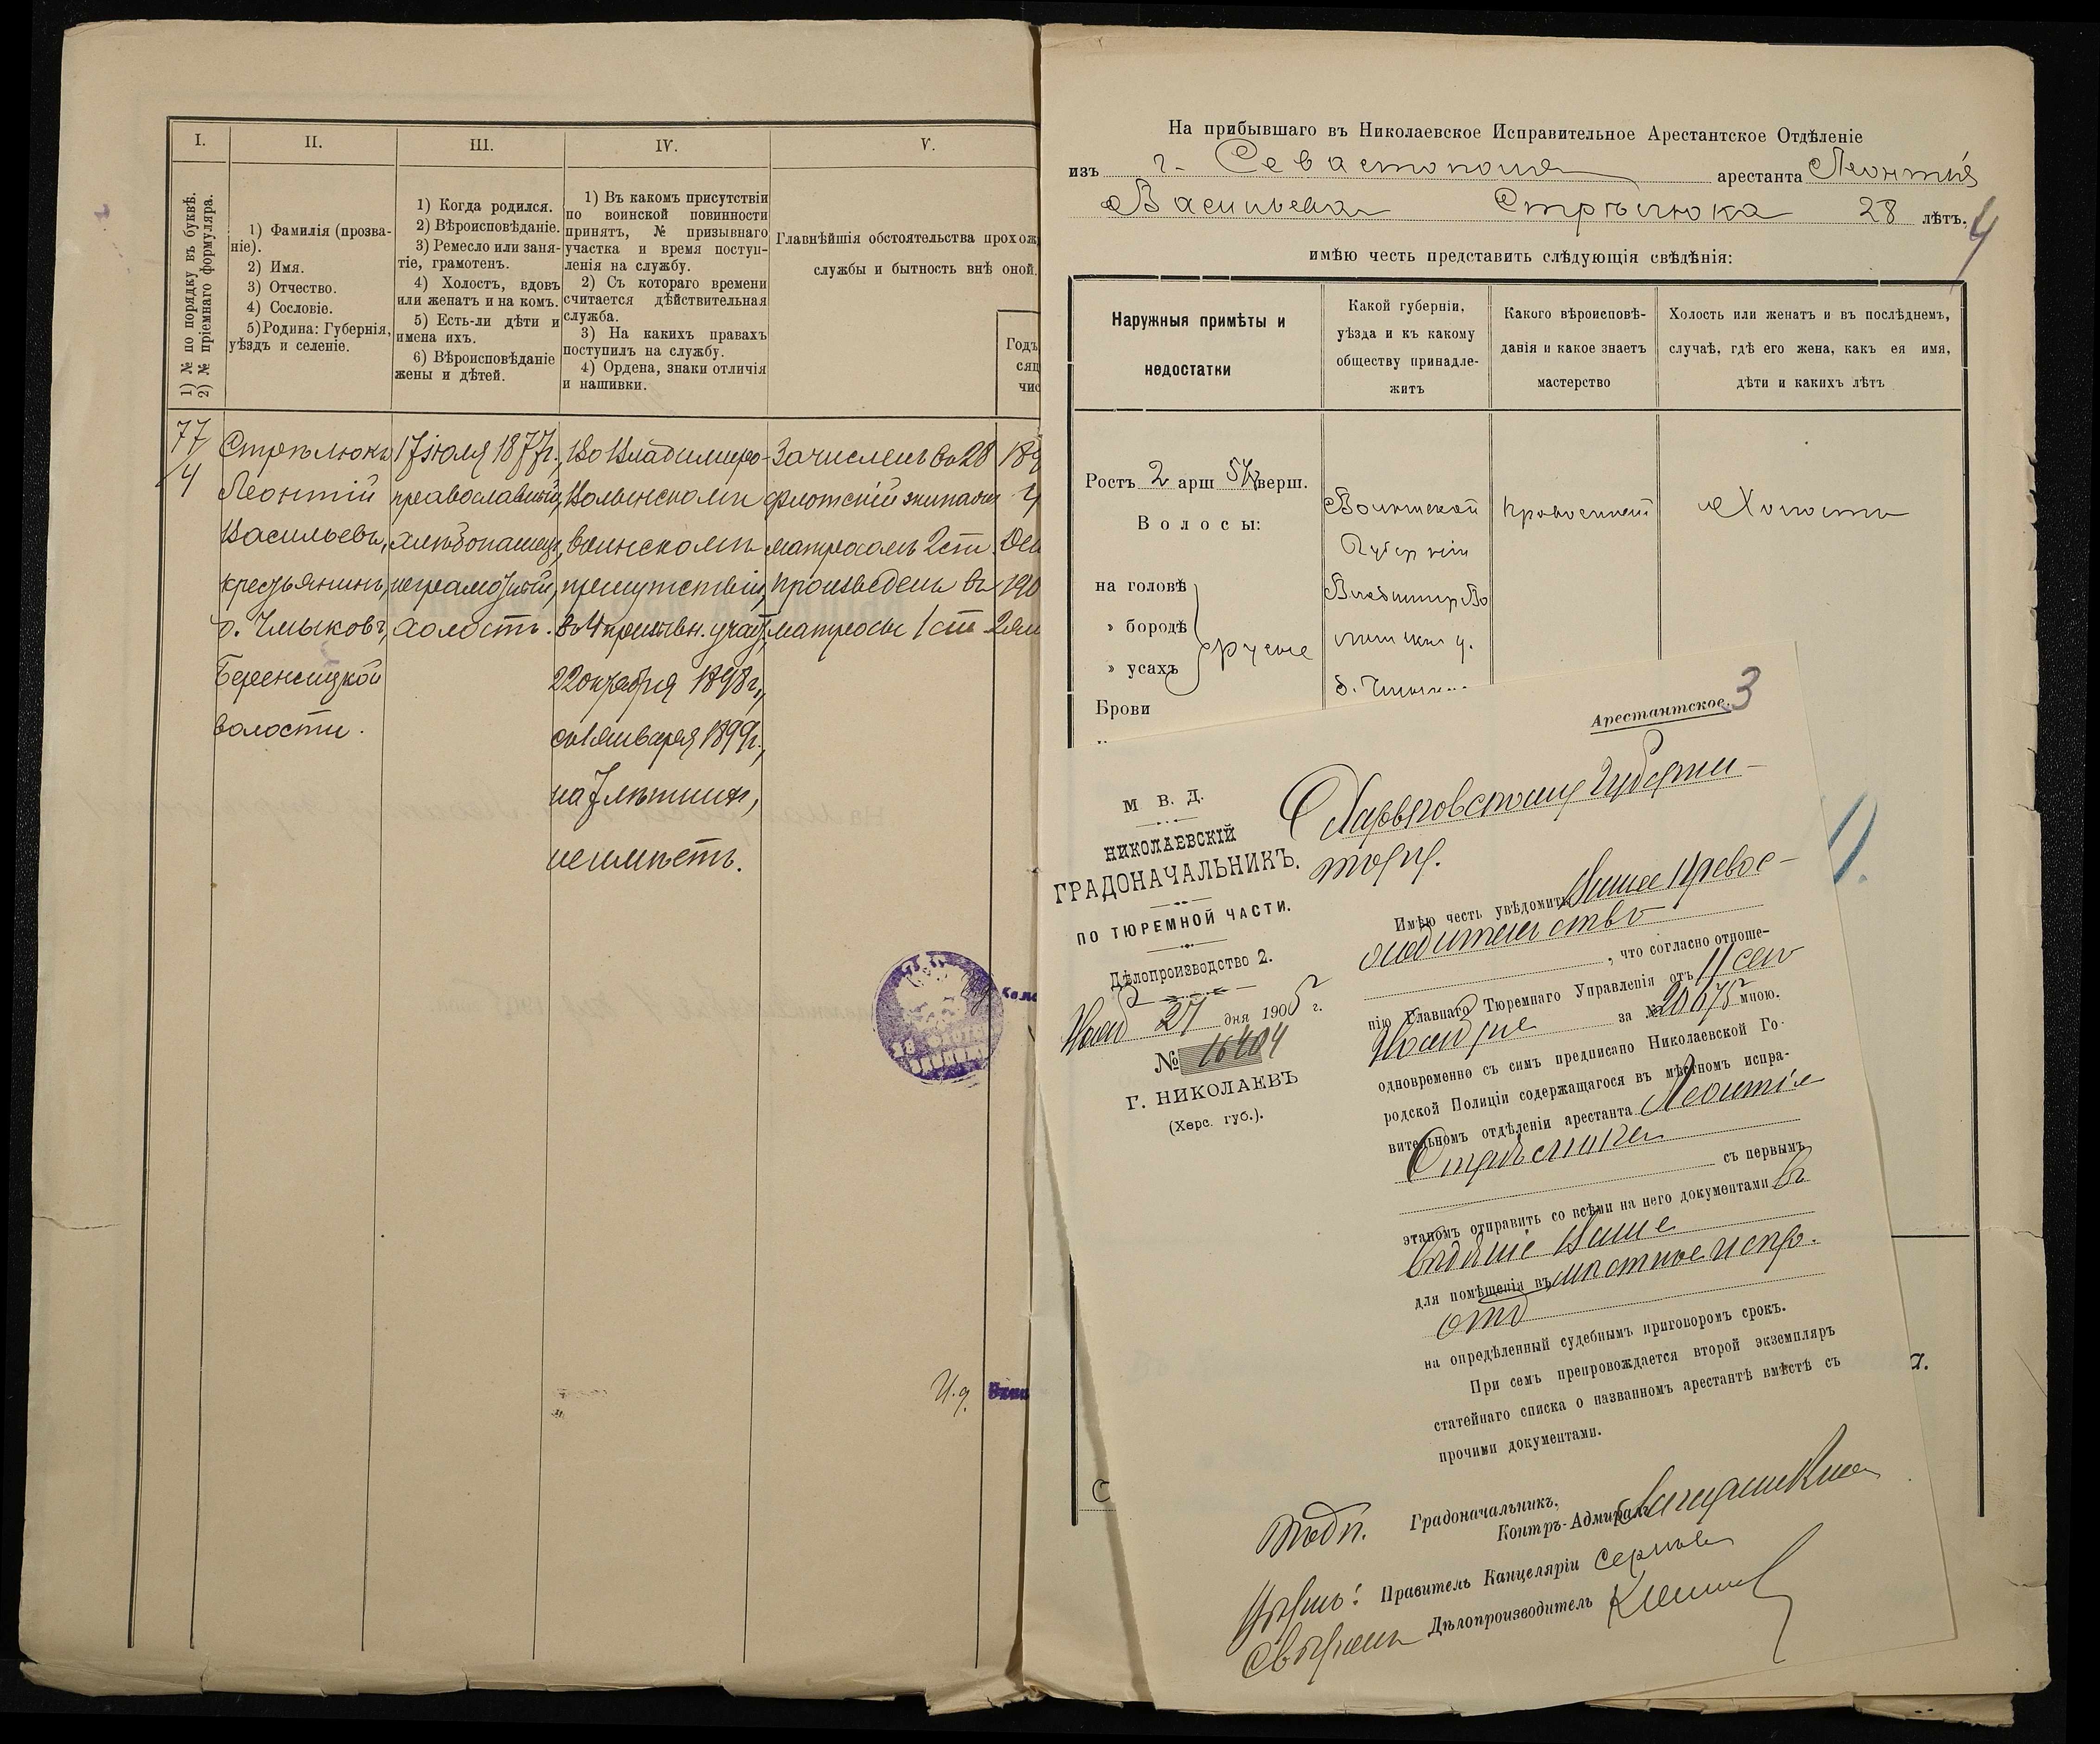 I.
II.
III.
IV.
V.
1) № по порядку въ буквѣ.
2) № пріемнаго формуляра.
1) Фамилія (прозва-
ніе).
2) Имя.
3) Отчество.
4) Сословіе.
5) Родина: Губернія,
уѣздъ и селеніе.
1) Когда родился.
2) Вѣроисповѣданіе.
3) Ремесло или заня-
тіе, грамотенъ.
4) Холостъ, вдовъ
или женатъ и на комъ.
5) Есть-ли дѣти и
имена ихъ.
6) Вѣроисповѣданіе
жены и дѣтей.
1) Въ какомъ присутствіи
по воинской повинности
принятъ, № призывнаго
участка и время поступ-
ленія на службу.
2) Съ котораго времени
считается дѣйствительная
служба.
3) На какихъ правахъ
поступилъ на службу.
4) Ордена, знаки отличія
и нашивки.
Главнѣйшія обстоятельства прохож
службы и бытность внѣ оной.
Годъ
сяц
чис
77
4
Стрѣлюкъ
Леонтій
Васильевъ,
крестьянинъ,
д. Чмыковъ,
Бережецкой
волости.
17 іюля 1877г.,
православный,
хлѣбопашецъ,
неграмотный,
холостъ.
Во Владиміро-
Волынскомъ
воинскомъ
присутствіи,
въ 4 призывн. участ.,
22 октября 1898 г.,
съ 1 января 1899г.,
на 7 лѣтнихъ,
не имѣетъ.
Зачисленъ въ 28
флотскій экипажъ
матросомъ 2 ст.
Произведенъ въ
матросы 1 ст
189
4
Дек
190
2 ян
И. д.
На прибывшаго въ Николаевское Исправительное Арестантское Отдѣленіе
изъ г. Севастополя арестанта Леонтія
Васильева Стрѣлюка 28 лѣтъ.
4
имѣю честь представить слѣдующія свѣдѣнія:
Наружныя примѣты и
недостатки
Какой губерніи,
уѣзда и къ какому
обществу принадле-
житъ
Какого вѣроисповѣ-
данія и какое знаетъ
мастерство
Холостъ или женатъ и въ послѣднемъ,
случаѣ, гдѣ его жена, какъ ея имя,
дѣти и какихъ лѣтъ
Ростъ 2 арш 5½ верш.
Волосы:
на головѣ
» бородѣ
» усахъ
русые
Брови
Волынской
Губерніи
Владиміръ Во
лынскаго у.
Православный
Холостъ
Арестантское.
3
М. В. Д.
НИКОЛАЕВСКІЙ
ГРАДОНАЧАЛЬНИКЪ.
ПО ТЮРЕМНОЙ ЧАСТИ.
Дѣлопроизводство 2.
Нояб 27 дня 1905 г.
№ 16404
Г. НИКОЛАЕВЪ
(Херс. губ.).
Харьковскому Губерна-
тору.
Имѣю честь увѣдомить Ваше Превос-
ходительство
, что согласно отноше-
нію Главнаго Тюремнаго Управленія отъ 11 сего
Ноября за № 20675 мною.
одновременно съ симъ предписано Николаевской Го-
родской Полиціи содержащагося въ мѣстномъ испра-
вительномъ отдѣленіи арестанта Леонтія
Стрѣлюка
съ первымъ
этапомъ отправить со всѣми на него документами въ
вѣдѣніе Ваше
для помѣщенія въ мѣстное испр.
отд
на опредѣленный судебнымъ приговоромъ срокъ.
При семъ препровождается второй экземпляръ
статейнаго списка о названномъ арестантѣ вмѣстѣ съ
прочими документами.
Подп. Градоначальникъ,
Контръ-Адмиралъ
Вѣрно: Правитель Канцеляріи
Свѣрялъ Дѣлопроизводитель